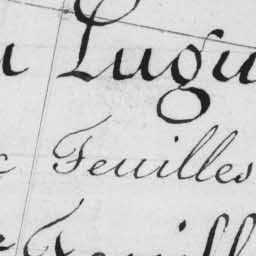 Lugu
Feuilles
Feuill